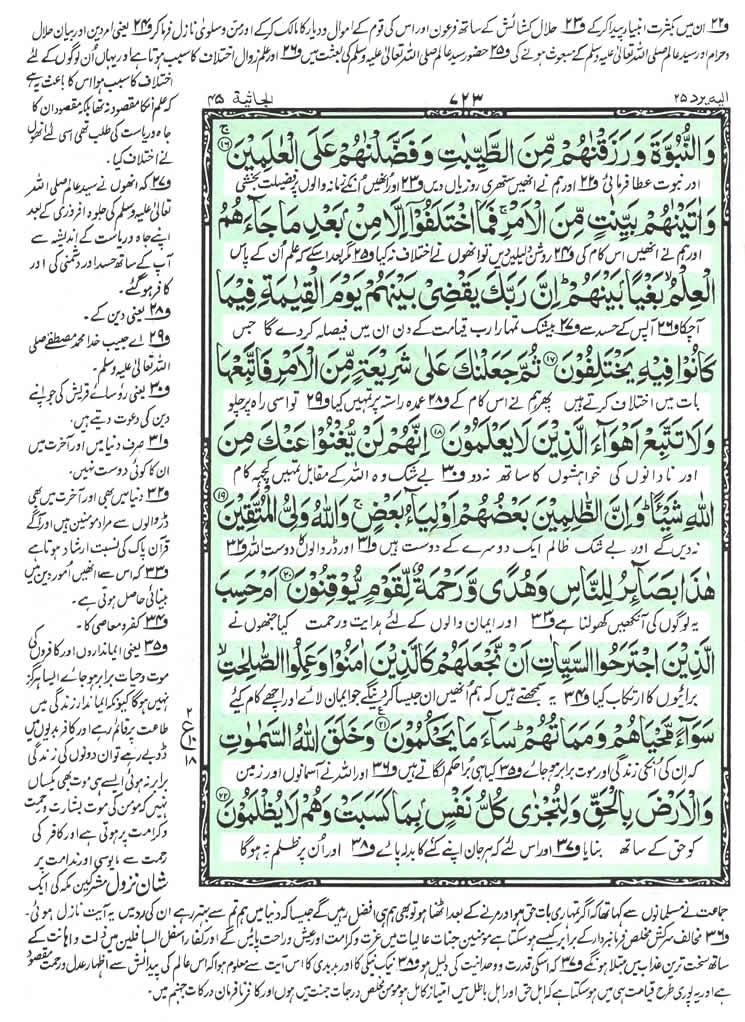 و۲۲ ان میں بکثرت انبیاء پیدا کرکے و۲۳ حلال کشائش کے ساتھ فرعون اور اس کی قوم کے اموال و دیار کا مالک کرکے اور من و سلویٰ نازل فرما کر و۲۴ یعنی امر دین اور بیان حلال
و حرام اور سید عالم صلی اللہ تعالیٰ علیہ وسلم کے مبعوث ہونے کی و۲۵ حضور سید عالم صلی اللہ تعالیٰ علیہ وسلم کی بعثت میں و۲۶ اور علم زوال اختلاف کا سبب ہوتا ہے اور یہاں ان لوگوں کے لئے
اختلاف کا سبب ہوا اس کا باعث یہ ہے
کہ علم انکا مقصود نہ تھا بلکہ مقصود ان کا
جاہ و ریاست کی طلب تھی اسی لئے انھوں
نے اختلاف کیا۔
و۲۷ کہ انھوں نے سید عالم صلی اللہ
تعالیٰ علیہ وسلم کی جلوہ افروزی کے بعد
اپنے جاہ و ریاست کے اندیشہ سے
آپ کے ساتھ حسد اور دشمنی کی اور
کافر ہوگئے۔
و۲۸ یعنی دین کے۔
و۲۹ اے حبیب خدا محمد مصطفےٰ صلی
اللہ تعالیٰ علیہ وسلم۔
و۳۰ یعنی رؤسائے قریش کی جو اپنے
دین کی دعوت دیتے ہیں۔
و۳۱ صرف دنیا میں اور آخرت میں
ان کا کوئی دوست نہیں۔
و۳۲ دنیا میں بھی اور آخرت میں بھی
ڈر والوں سے مراد مومنین ہیں اور آگے
قرآن پاک کی نسبت ارشاد ہوتا ہے
و۳۳ کہ اس سے انھیں امور دین میں
بینائی حاصل ہوتی ہے۔
و۳۴ کفر و معاصی کا۔
و۳۵ یعنی ایمانداروں اور کافروں کی
موت و حیات برابر ہو جائے ایسا ہرگز
نہیں ہوگا کیونکہ ایماندار زندگی میں
طاعت پر قائم رہے اور کافر بدیوں میں
ڈوبے رہے تو ان دونوں کی زندگی
برابر نہ ہوئی ایسے ہی موت بھی یکساں
نہیں کہ مومن کی موت بشارت و رحمت
و کرامت پر ہوتی ہے اور کافر کی
رحمت سے مایوسی اور ندامت پر
شان نزول مشرکین مکہ کی ایک
الیہ یرد ۲۵ ۷۲۳ الجاثیۃ ۴۵
وَالنُّبُوَّةَ وَرَزَقْنٰهُمْ مِّنَ الطَّيِّبٰتِ وَفَضَّلْنٰهُمْ عَلَى الْعٰلَمِيْنَ ۱۶
اور نبوت عطا فرمائی و۲۲ اور ہم نے انھیں ستھری روزیاں دیں و۲۳ اور انھیں انکے زمانہ والوں پر فضیلت بخشی
وَاٰتَيْنٰهُمْ بَيِّنٰتٍ مِّنَ الْاَمْرِ ۚ فَمَا اخْتَلَفُوْٓا اِلَّا مِنْۢ بَعْدِ مَا جَآءَهُمُ
اور ہم نے انھیں اس کام کی و۲۴ روشن دلیلیں دیں تو انھوں نے اختلاف نہ کیا و۲۵ مگر بعد اسکے کہ علم ان کے پاس
الْعِلْمُ ۙ بَغْيًۢا بَيْنَهُمْ ؕ اِنَّ رَبَّكَ يَقْضِيْ بَيْنَهُمْ يَوْمَ الْقِيٰمَةِ فِيْمَا
آچکا و۲۶ آپس کے حسد سے و۲۷ بیشک تمہارا رب قیامت کے دن ان میں فیصلہ کر دے گا جس
كَانُوْا فِيْهِ يَخْتَلِفُوْنَ ۱۷ ثُمَّ جَعَلْنٰكَ عَلٰى شَرِيْعَةٍ مِّنَ الْاَمْرِ فَاتَّبِعْهَا
بات میں اختلاف کرتے ہیں پھر ہم نے اس کام کے و۲۸ عمدہ راستہ پر تمہیں کیا و۲۹ تو اسی راہ پر چلو
وَلَا تَتَّبِعْ اَهْوَآءَ الَّذِيْنَ لَا يَعْلَمُوْنَ ۱۸ اِنَّهُمْ لَنْ يُّغْنُوْا عَنْكَ مِنَ
اور نادانوں کی خواہشوں کا ساتھ نہ دو و۳۰ بے شک وہ اللہ کے مقابل تمہیں کچھ کام
اللّٰهِ شَيْـًٔا ؕ وَاِنَّ الظّٰلِمِيْنَ بَعْضُهُمْ اَوْلِيَآءُ بَعْضٍ ۚ وَاللّٰهُ وَلِيُّ الْمُتَّقِيْنَ ۱۹
نہ دیں گے اور بے شک ظالم ایک دوسرے کے دوست ہیں و۳۱ اور ڈر والوں کا دوست اللہ و۳۲
هٰذَا بَصَآئِرُ لِلنَّاسِ وَهُدًى وَّرَحْمَةٌ لِّقَوْمٍ يُّوْقِنُوْنَ ۲۰ اَمْ حَسِبَ
یہ لوگوں کی آنکھیں کھولنا ہے و۳۳ اور ایمان والوں کے لئے ہدایت و رحمت کیا جنھوں نے
الَّذِيْنَ اجْتَرَحُوا السَّيِّاٰتِ اَنْ نَّجْعَلَهُمْ كَالَّذِيْنَ اٰمَنُوْا وَعَمِلُوا الصّٰلِحٰتِ ۙ
برائیوں کا ارتکاب کیا و۳۴ یہ سمجھتے ہیں کہ ہم انھیں ان جیسا کر دینگے جو ایمان لائے اور اچھے کام کئے
سَوَآءً مَّحْيَاهُمْ وَمَمَاتُهُمْ ؕ سَآءَ مَا يَحْكُمُوْنَ ۲۱ وَخَلَقَ اللّٰهُ السَّمٰوٰتِ
کہ ان کی انکی زندگی اور موت برابر ہو جائے و۳۵ کیا ہی برا حکم لگاتے ہیں و۳۶ اور اللہ نے آسمانوں اور زمین
وَالْاَرْضَ بِالْحَقِّ وَلِتُجْزٰى كُلُّ نَفْسٍۢ بِمَا كَسَبَتْ وَهُمْ لَا يُظْلَمُوْنَ ۲۲
کو حق کے ساتھ بنایا و۳۷ اور اس لئے کہ ہر جان اپنے کئے کا بدلہ پائے و۳۸ اور ان پر ظلم نہ ہوگا
۲ ع ۱۸
جماعت نے مسلمانوں سے کہا تھا کہ اگر تمہاری بات حق ہو اور مرنے کے بعد اٹھنا ہو تو بھی ہم ہی افضل رہیں گے جیسا کہ دنیا میں ہم تم سے بہتر رہے ان کی رد میں یہ آیت نازل ہوئی۔
و۳۶ مخالف سرکش مخلص فرمانبردار کے برابر کیسے ہو سکتا ہے مومنین جنات عالیات میں عزت و کرامت اور عیش و راحت پائیں گے اور کفار اسفل السافلین میں ذلت و اہانت کے
ساتھ سخت ترین عذاب میں مبتلا ہونگے و۳۷ کہ اسکی قدرت و وحدانیت کی دلیل ہو و۳۸ نیک نیکی کا اور بد بدی کا اس آیت سے معلوم ہوا کہ اس عالم کی پیدائش سے اظہار عدل و رحمت مقصود
ہے اور یہ پوری طرح قیامت ہی میں ہو سکتا ہے کہ اہل حق اور اہل باطل میں امتیاز کامل ہو مومن مخلص درجات جنت میں ہوں اور کافر نافرمان درکات جہنم میں۔